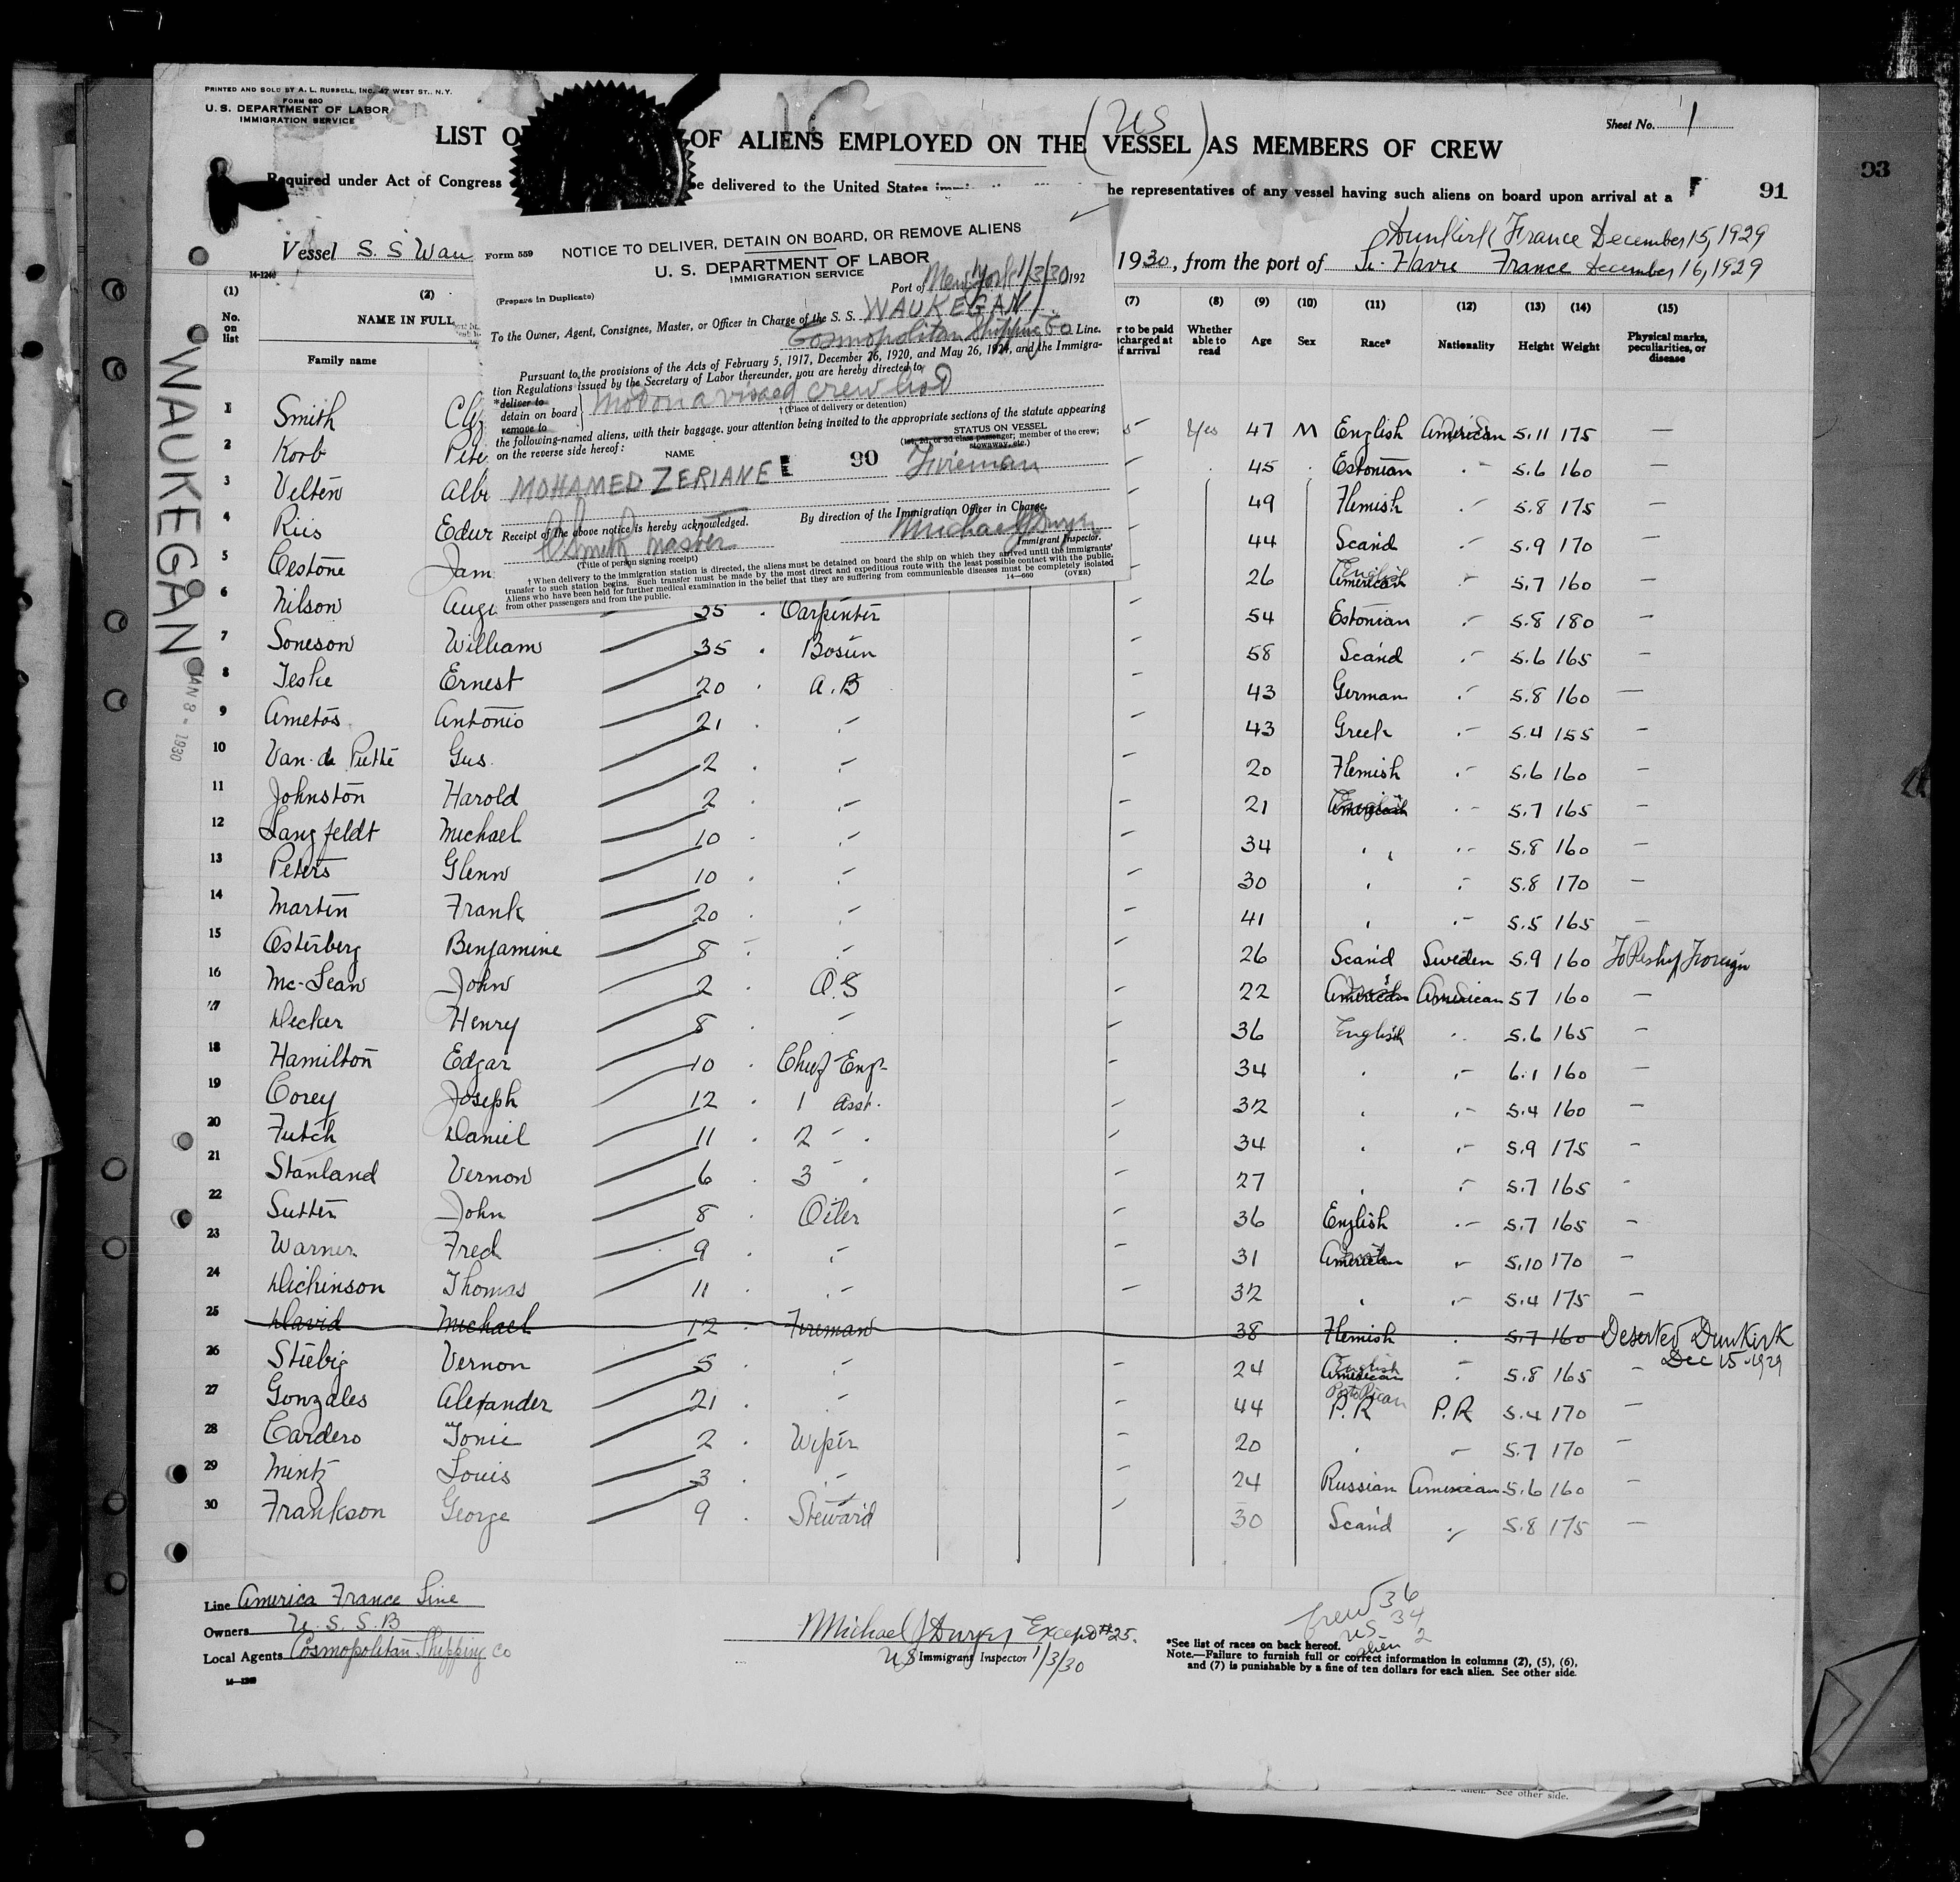 PRINTED AND SOLD BY A. L. RUSSELL, INC. 47 WEST ST., N.Y.
FORM 680
U. S. DEPARTMENT OF LABOR
IMMIGRATION SERVICE
Sheet No. 1
(US)
LIST O OF ALIENS EMPLOYED ON THE VESSEL AS MEMBERS OF CREW
Required under Act of Congress e delivered to the United States he representatives of any vessel having such aliens on board upon arrival at a
91
93
Vessel S. S Wau
Dunkirk France December 15, 1929
1930, from the port of Le Havre France December 16, 1929
14-1240
Form 559
NOTICE TO DELIVER, DETAIN ON BOARD, OR REMOVE ALIENS
U. S. DEPARTMENT OF LABOR
IMMIGRATION SERVICE
(Prepare in Duplicate)
Port of New York 1/3/30 192
To the Owner, Agent, Consignee, Master, or Officer in Charge of the S. S. WAUKEGAN
Cosmopolitan Shipping Co Line.
Pursuant to the provisions of the Acts of February 5, 1917, December 26, 1920, and May 26, 1924, and the Immigra-
tion Regulations issued by the Secretary of Labor thereunder, you are hereby directed to
*deliver to
detain on board
remove to
Not on a visaed crew list
† (Place of delivery or detention)
the following-named aliens, with their baggage, your attention being invited to the appropriate sections of the statute appearing
on the reverse side hereof:
STATUS ON VESSEL
(1st, 2d, or 3d class passenger; member of the crew;
stowaway, etc.)
NAME
MOHAMED ZERIANE 90 Fireman
Receipt of the above notice is hereby acknowledged.
By direction of the Immigration Officer in Charge.
C Smith master
Michael J Dwyer
Immigrant Inspector.
(Title of person signing receipt)
† When delivery to the immigration station is directed, the aliens must be detained on board the ship on which they arrived until the immigrants'
transfer to such station begins. Such transfer must be made by the most direct and expeditious route with the least possible contact with the public.
Aliens who have been held for further medical examination in the belief that they are suffering from communicable diseases must be completely isolated
from other passengers and from the public.
14—660 (OVER)
WAUKEGAN
JAN 8 - 1930
(1) (2) (7) (8) (9) (10) (11) (12) (13) (14) (15)
No. on list NAME IN FULL Family name r to be paid charged at f arrival Whether able to read Age Sex Race* Nationality Height Weight Physical marks, peculiarities, or disease
1 Smith 5 Yes 47 M English American 5.11 175 —
2 Korb Pete 45 Estonian " 5.6 160 —
3 Velten Alb 49 Flemish " 5.8 175 —
4 Riis Edw 44 Scand " 5.9 170 —
5 Cestone Jam 26 American English " 5.7 160 —
6 Nilson Augu 35 Carpenter 54 Estonian " 5.8 180 —
7 Soneson William 35 Bosun 58 Scand " 5.6 165 —
8 Teske Ernest 20 A.B 43 German " 5.8 160 —
9 Ametos Antonio 21 " 43 Greek " 5.4 155 —
10 Van de Putte Gus. 2 " 20 Flemish " 5.6 160 —
11 Johnston Harold 2 " 21 American English " 5.7 165 —
12 Langfeldt Michael 10 " 34 " " 5.8 160 —
13 Peters Glenn 10 " 30 " " 5.8 170 —
14 Martin Frank 20 " 41 " " 5.5 165 —
15 Osterberg Benjamine 8 " 26 Scand Sweden 5.9 160 To Reship Foreign
16 Mc-Lean John 2 O.S 22 American American 5 7 160 —
17 Decker Henry 8 " 36 English " 5.6 165 —
18 Hamilton Edgar 10 Chief Eng. 34 " " 6.1 160 —
19 Corey Joseph 12 1 Asst. 32 " " 5.4 160 —
20 Futch Daniel 11 2 " 34 " " 5.9 175 —
21 Stanland Vernon 6 3 " 27 " " 5.7 165 -
22 Sutter John 8 Oiler 36 English " 5.7 165 —
23 Warner Fred 9 " 31 American " 5.10 170 —
24 Dickinson Thomas 11 " 32 " " 5.4 175 —
25 David Michael 12 Fireman 38 Flemish " 5.7 160 Deserted Dunkirk
Dec 15 - 1929
26 Stiebig Vernon 5 " 24 English American " 5.8 165 —
27 Gonzales Alexander 21 " 44 Porto Rican P.R P.R 5.4 170 —
28 Cardero Tonie 2 Wiper 20 " " 5.7 170 —
29 Mintz Louis 3 " 24 Russian American 5.6 160 —
30 Frankson George 9 Steward 30 Scand " 5.8 175 —
Line America France Line
Owners U. S. S. B
Local Agents Cosmopolitan Shipping Co
14—1240
Michael J Dwyer Except #25.
US Immigrant Inspector 1/3/30
Crew 36
US 34
alien 2
*See list of races on back hereof.
Note.—Failure to furnish full or correct information in columns (2), (5), (6),
and (7) is punishable by a fine of ten dollars for each alien. See other side.
alien. See other side.